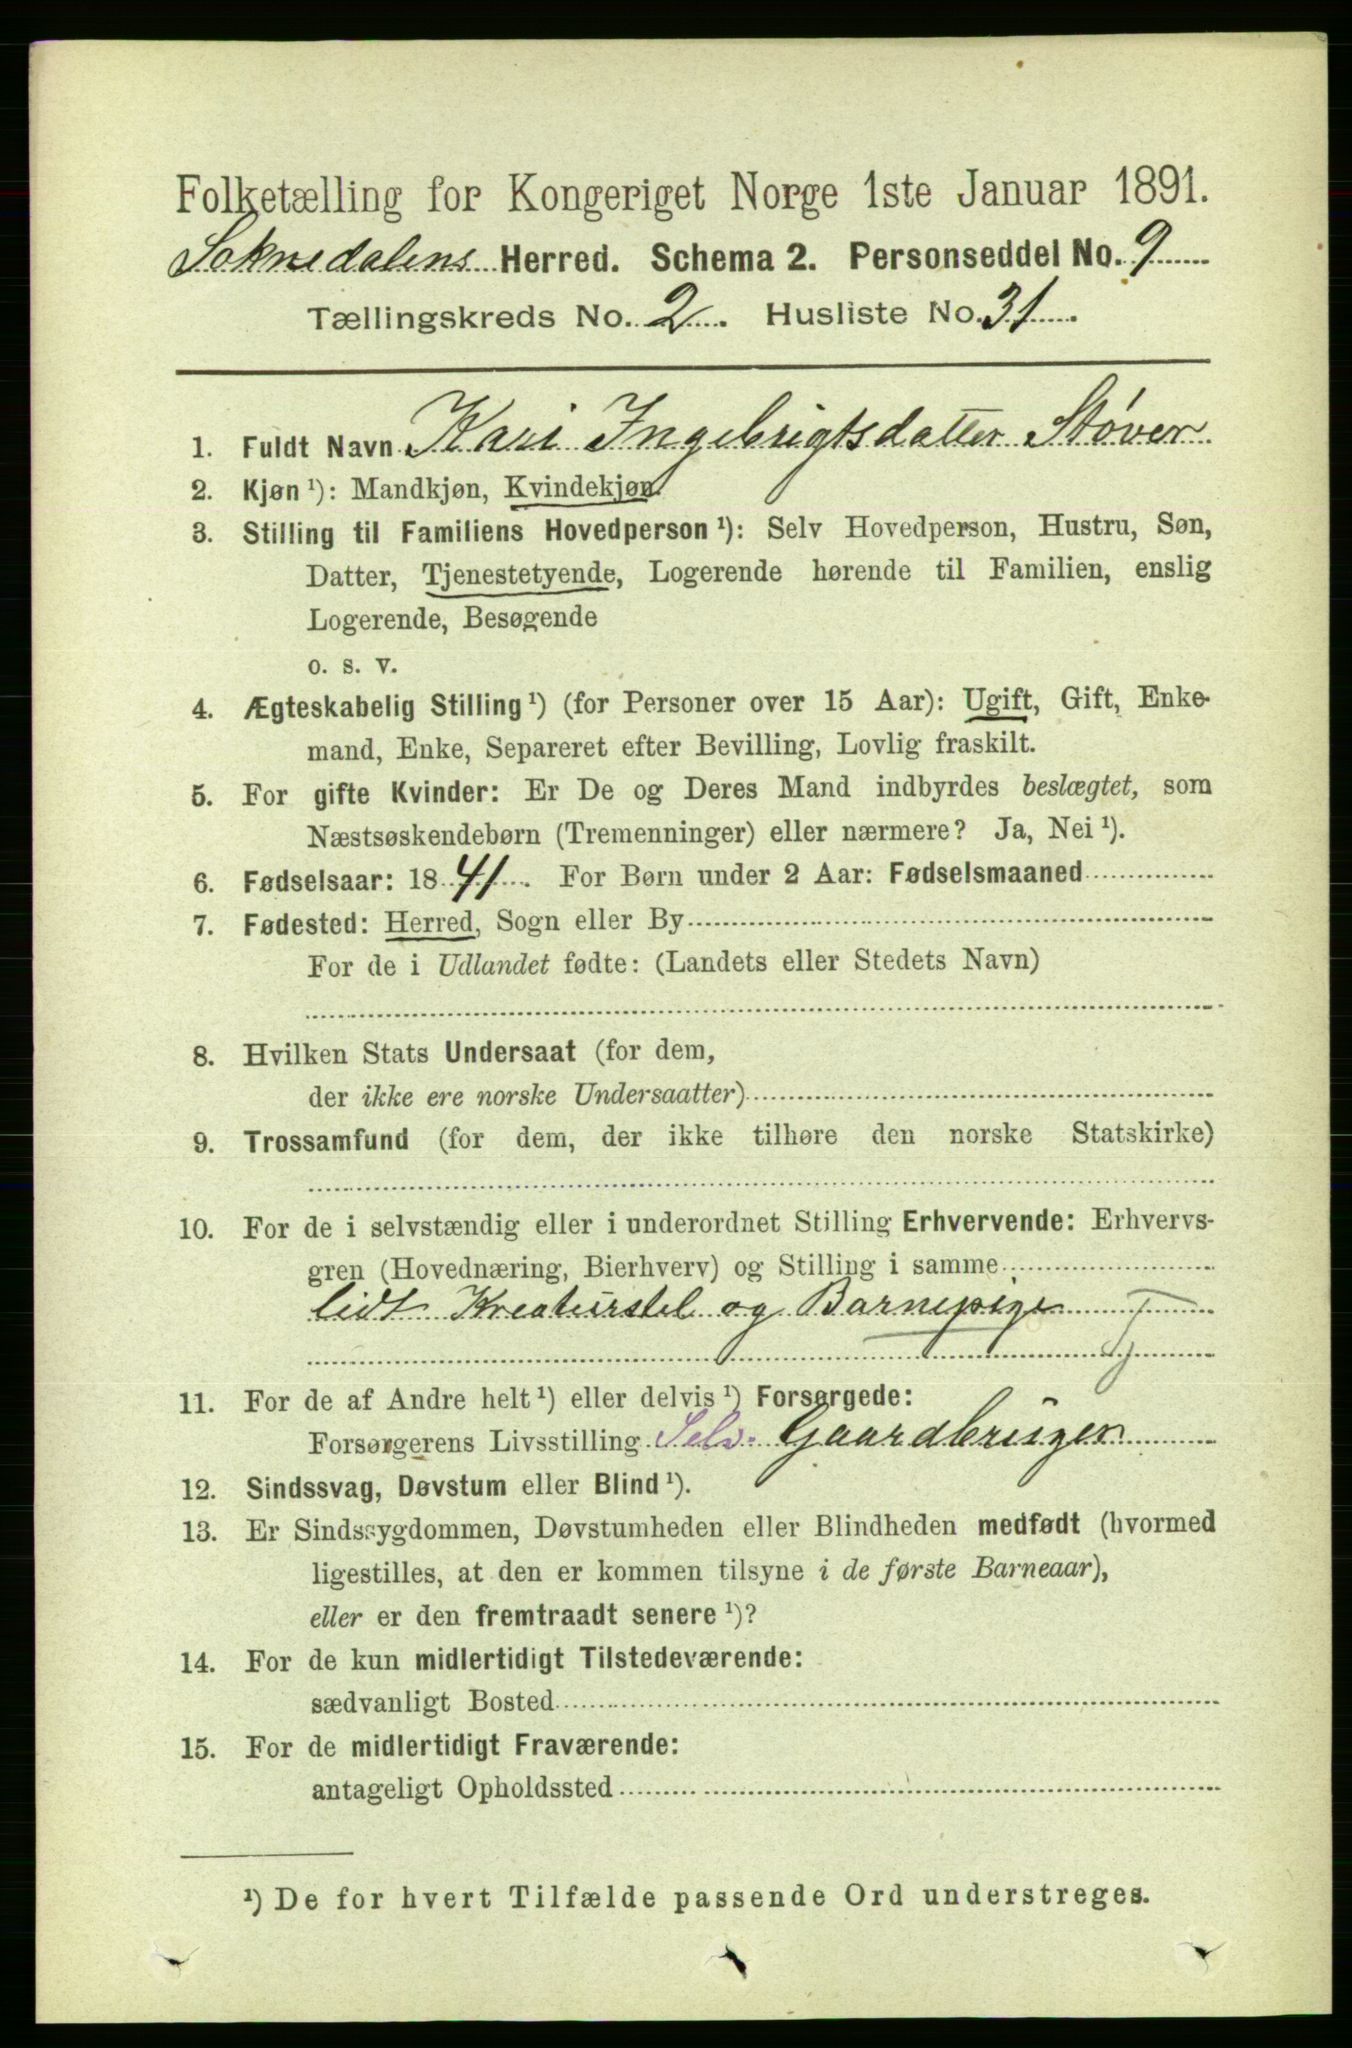 Folketælling for Kongeriget Norge 1ste Januar 1891.
Soknedalens Herred. Schema 2. Personseddel No. 9
Tællingskreds No. 2. Husliste No. 31.
1. Fuldt Navn Kari Ingebrigtsdatter Støver
2. Kjøn ¹): Mandkjøn, Kvindekjøn.
3. Stilling til Familiens Hovedperson ¹): Selv Hovedperson, Hustru, Søn,
Datter, Tjenestetyende, Logerende hørende til Familien, enslig
Logerende, Besøgende
o. s. v.
4. Ægteskabelig Stilling ¹) (for Personer over 15 Aar): Ugift, Gift, Enke-
mand, Enke, Separeret efter Bevilling, Lovlig fraskilt.
5. For gifte Kvinder: Er De og Deres Mand indbyrdes beslægtet, som
Næstsøskendebørn (Tremenninger) eller nærmere? Ja, Nei ¹).
6. Fødselsaar: 1841. For Børn under 2 Aar: Fødselsmaaned
7. Fødested: Herred, Sogn eller By
For de i Udlandet fødte: (Landets eller Stedets Navn)
8. Hvilken Stats Undersaat (for dem,
der ikke ere norske Undersaatter)
9. Trossamfund (for dem, der ikke tilhøre den norske Statskirke)
10. For de i selvstændig eller i underordnet Stilling Erhvervende: Erhvervs-
gren (Hovednæring, Bierhverv) og Stilling i samme
lidt Kreaturstel og Barnepige Tj
11. For de af Andre helt ¹) eller delvis ¹) Forsørgede:
Forsørgerens Livsstilling Selv. Gaardbruger
12. Sindssvag, Døvstum eller Blind ¹).
13. Er Sindssygdommen, Døvstumheden eller Blindheden medfødt (hvormed
ligestilles, at den er kommen tilsyne i de første Barneaar),
eller er den fremtraadt senere ¹)?
14. For de kun midlertidigt Tilstedeværende:
sædvanligt Bosted
15. For de midlertidigt Fraværende:
antageligt Opholdssted
¹) De for hvert Tilfælde passende Ord understreges.